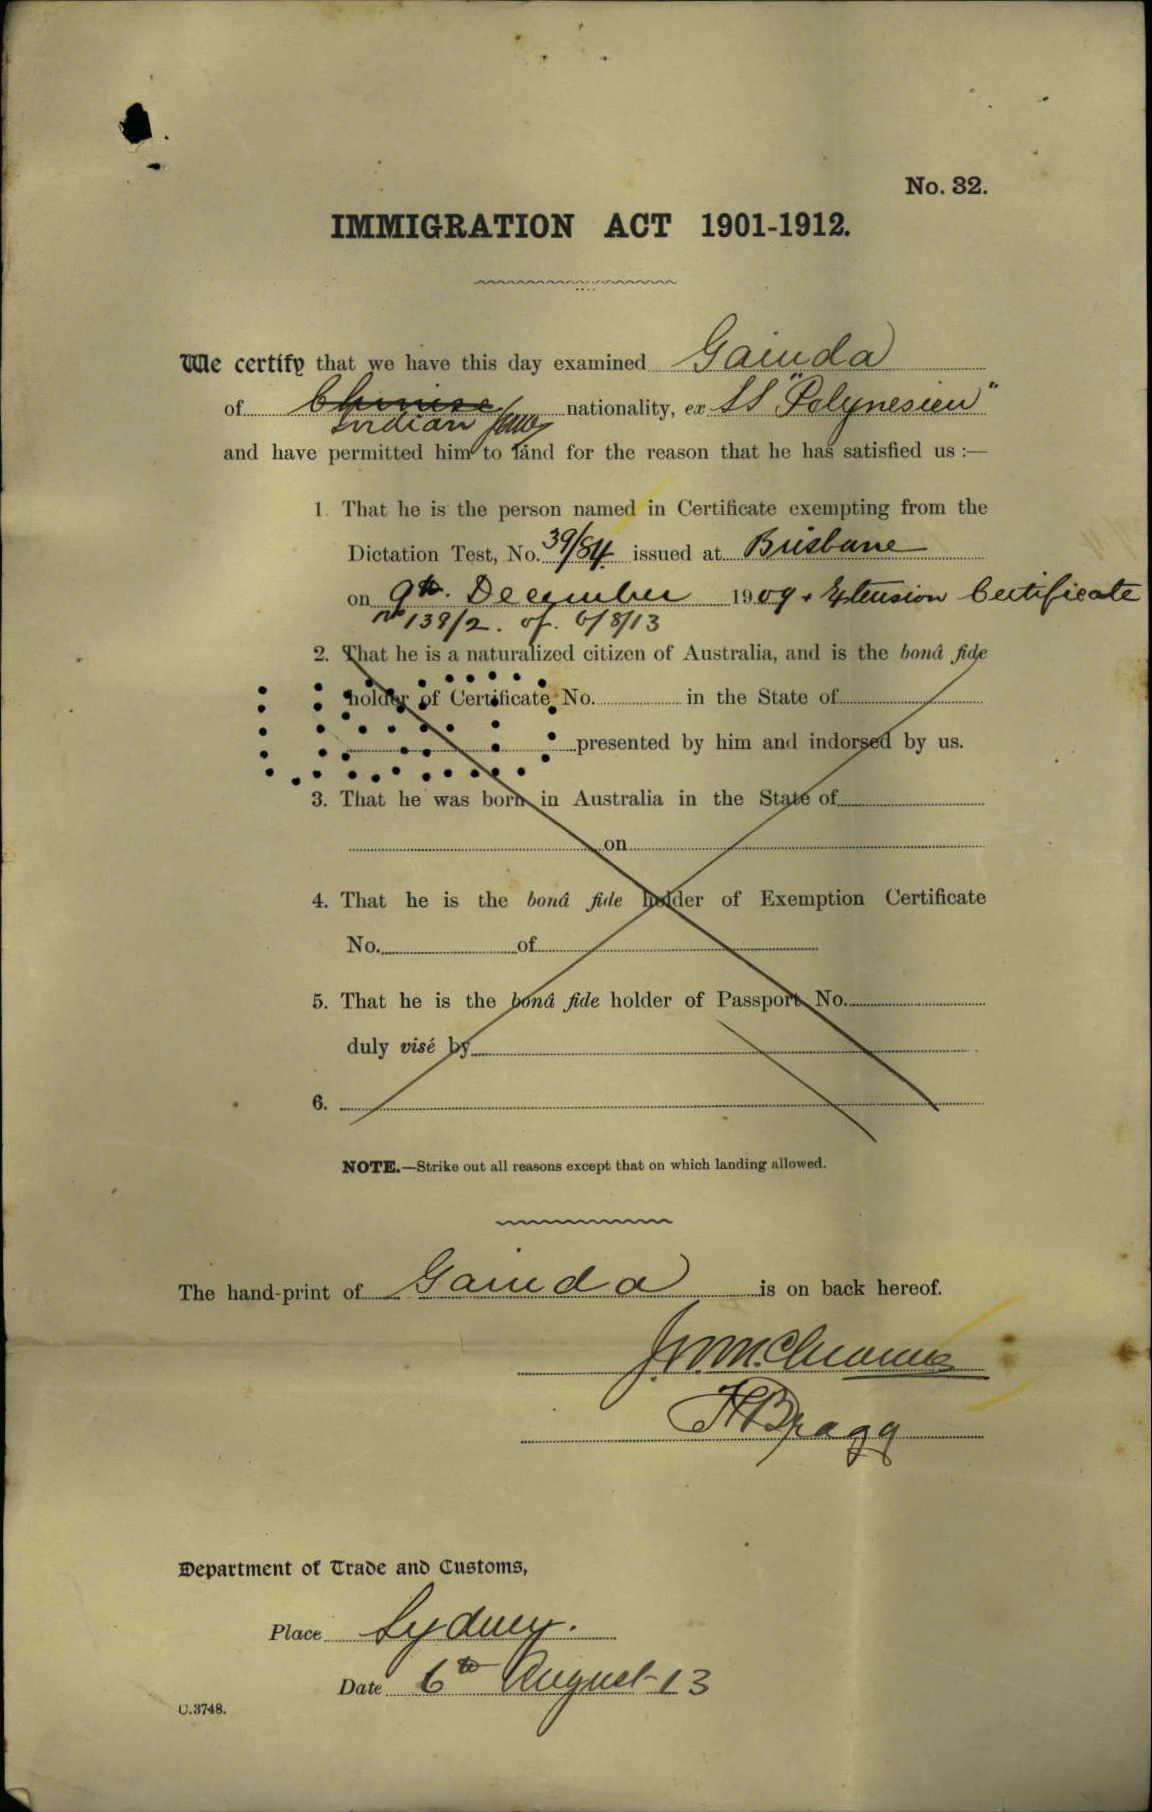 No. 32.
IMMIGRATION ACT 1901-1912.
We certify that we have this day examined Gainda
of Chinese nationality, ex SS "Polynesien"
Indian
and have permitted him to land for the reason that he has satisfied us :—
1. That he is the person named in Certificate exempting from the
Dictation Test, No. 39/84 issued at Brisbane
on 9th. December 1909 + Extension Certificate
No 139/2. of. 6/8/13
2. That he is a naturalized citizen of Australia, and is the bonâ fide
holder of Certificate No. in the State of
presented by him and indorsed by us.
3. That he was born in Australia in the State of
on
4. That he is the bonâ fide holder of Exemption Certificate
No. of
5. That he is the bonâ fide holder of Passport No.
duly visé by
6.
NOTE.—Strike out all reasons except that on which landing allowed.
The hand-print of Gainda is on back hereof.
Bragg
Department of Trade and Customs,
Place Sydney.
Date 6th August 13
C.3748.